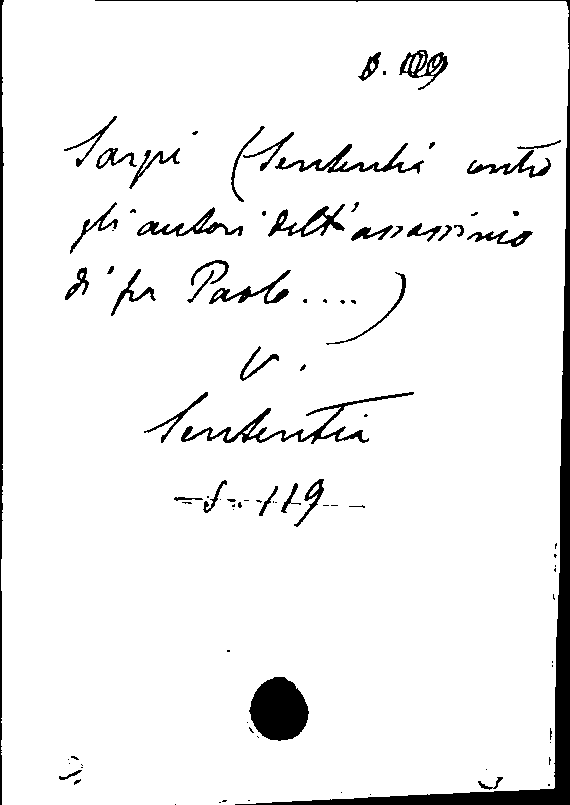 B. 109
Sarpi (Sententia contro
gli autori dell'assassinio
di fra Paolo....)
V.
Sententia
S. 119